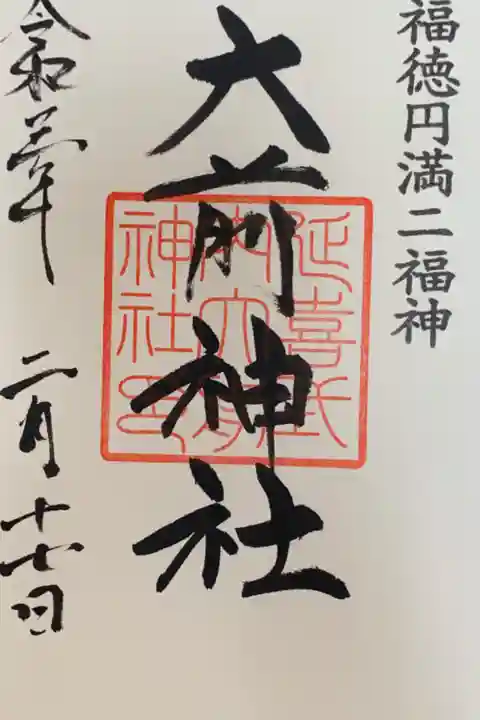 福徳円満二福神
大前神社
延喜式
内大前
神社印
令和三年 二月十七日